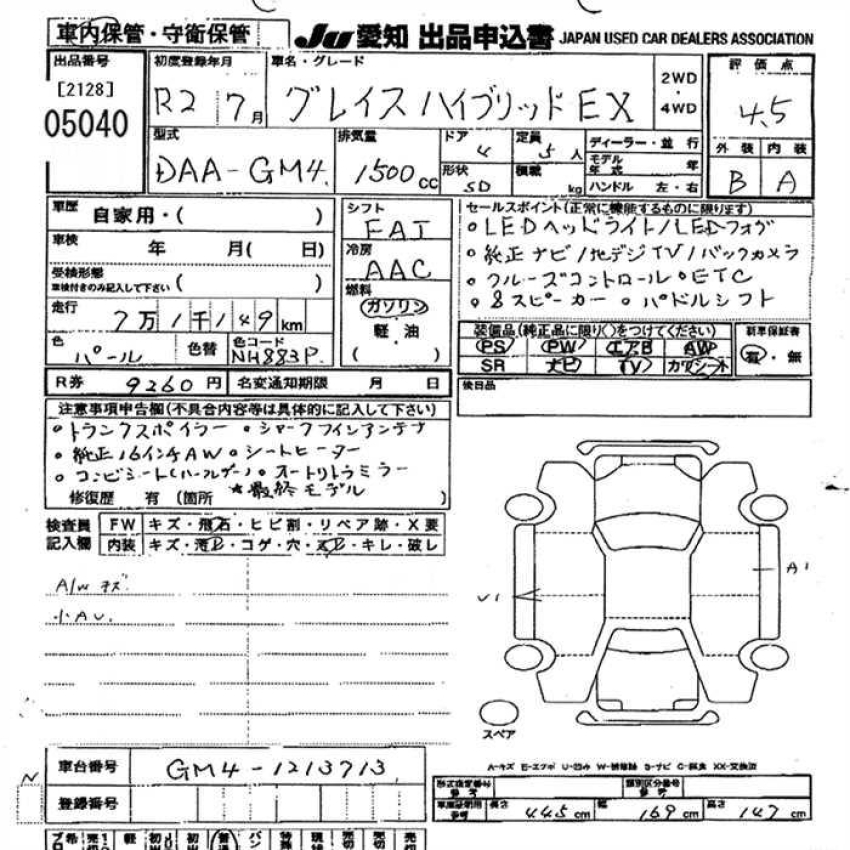 車内保管・守衛保管 JU 愛知 出品申込書 JAPAN USED CAR DEALERS ASSOCIATION
出品番号 [2128] 05040
初度登録年月 R2 7月
車名・グレード グレイス ハイブリッド EX
2WD・4WD
評価点 4.5
外装 B 内装 A
型式 DAA-GM4
排気量 1500cc
ドア 4
定員 5人
形状 SD
積載 kg
ディーラー・並行
モデル年式 年
ハンドル 左・右
車歴 自家用・( )
車検 年 月( 日)
受検形態 車検付きのみ記入して下さい ( )
走行 7万1千149km
色 パール 色替 色コード NH883P
シフト FAT
冷房 AAC
燃料 ガソリン 軽・油 ( )
セールスポイント(正常に機能するものに限ります)
○LEDヘッドライト/LEDフォグ
○純正ナビ/地デジTV/バックカメラ
○クルーズコントロール○ETC
○8スピーカー ○パドルシフト
装備品(純正品に限り○をつけてください)
PS PW エアB AW
SR ナビ TV カワシート
新車保証書 有・無
R券 9260円 名変通知期限 月 日
後日品
注意事項申告欄(不具合内容等は具体的に記入して下さい)
○トランクスポイラー ○シャークフィンアンテナ
○純正16インチAW ○シートヒーター
○コンビシート(ハーフレザー) ○オートリトラミラー
修復歴 有 (箇所 ★最終モデル
検査員記入欄
FW キズ・飛石・ヒビ割・リペア跡・X要
内装 キズ・汚れ・コゲ・穴・スレ・キレ・破レ
A/Wキズ
小AU.
U1
A1
スペア
A-キズ E-エクボ U-凹み W-補修跡 S-サビ C-腐食 XX-交換済
車台番号 GM4-1213713
登録番号
N
型式指定番号 類別区分番号
長さ 445cm 幅 169cm 高さ 147cm